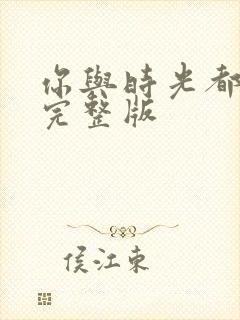 你與時光都
完整版
侯江東